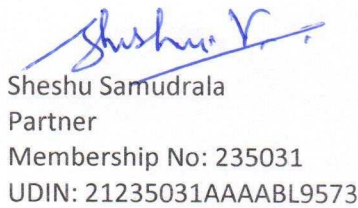 Sheshu V.
Sheshu Samudrala
Partner
Membership No: 235031
UDIN: 21235031AAAABL9573